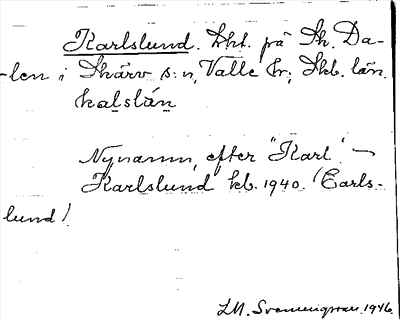 Karlslund. Lht. på St. Da-
-len i Skärv s:n, Valle hr; Skb. län.
kalslún
Nynamn, efter "Karl". —
Karlslund kb. 1940. (Earls-
lund)
1946.